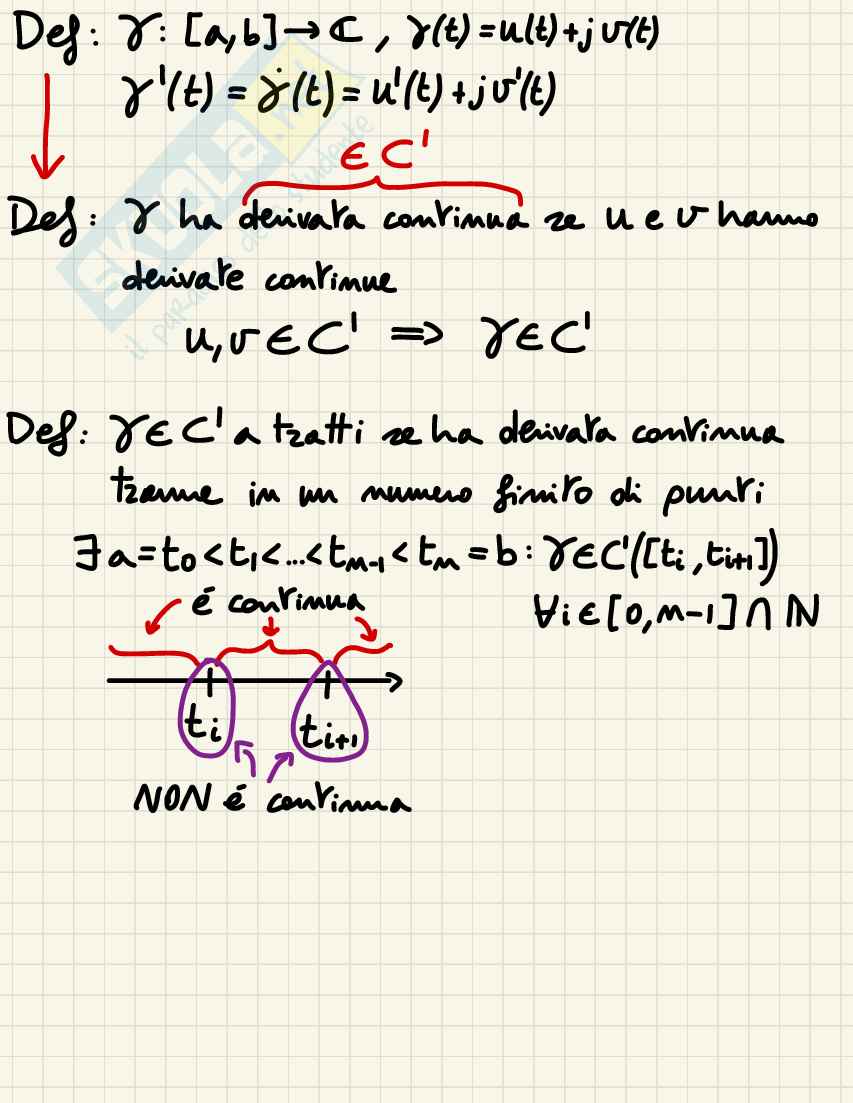 Def: γ: [a,b] → ℂ, γ(t) = u(t) + j v(t)
γ'(t) = γ̇(t) = u'(t) + j v'(t)
∈ C¹
Def: γ ha derivata continua se u e v hanno
derivate continue
u, v ∈ C¹ ⟹ γ ∈ C¹
Def: γ ∈ C¹ a tratti se ha derivata continua
tranne in un numero finito di punti
∃ a = t₀ < t₁ < ... < tₙ₋₁ < tₙ = b : γ ∈ C¹([tᵢ, tᵢ₊₁])
∀ i ∈ [0, n-1] ∩ ℕ
é continua
tᵢ tᵢ₊₁
NON é continua
SKUOLA.net
il paradiso dello studente